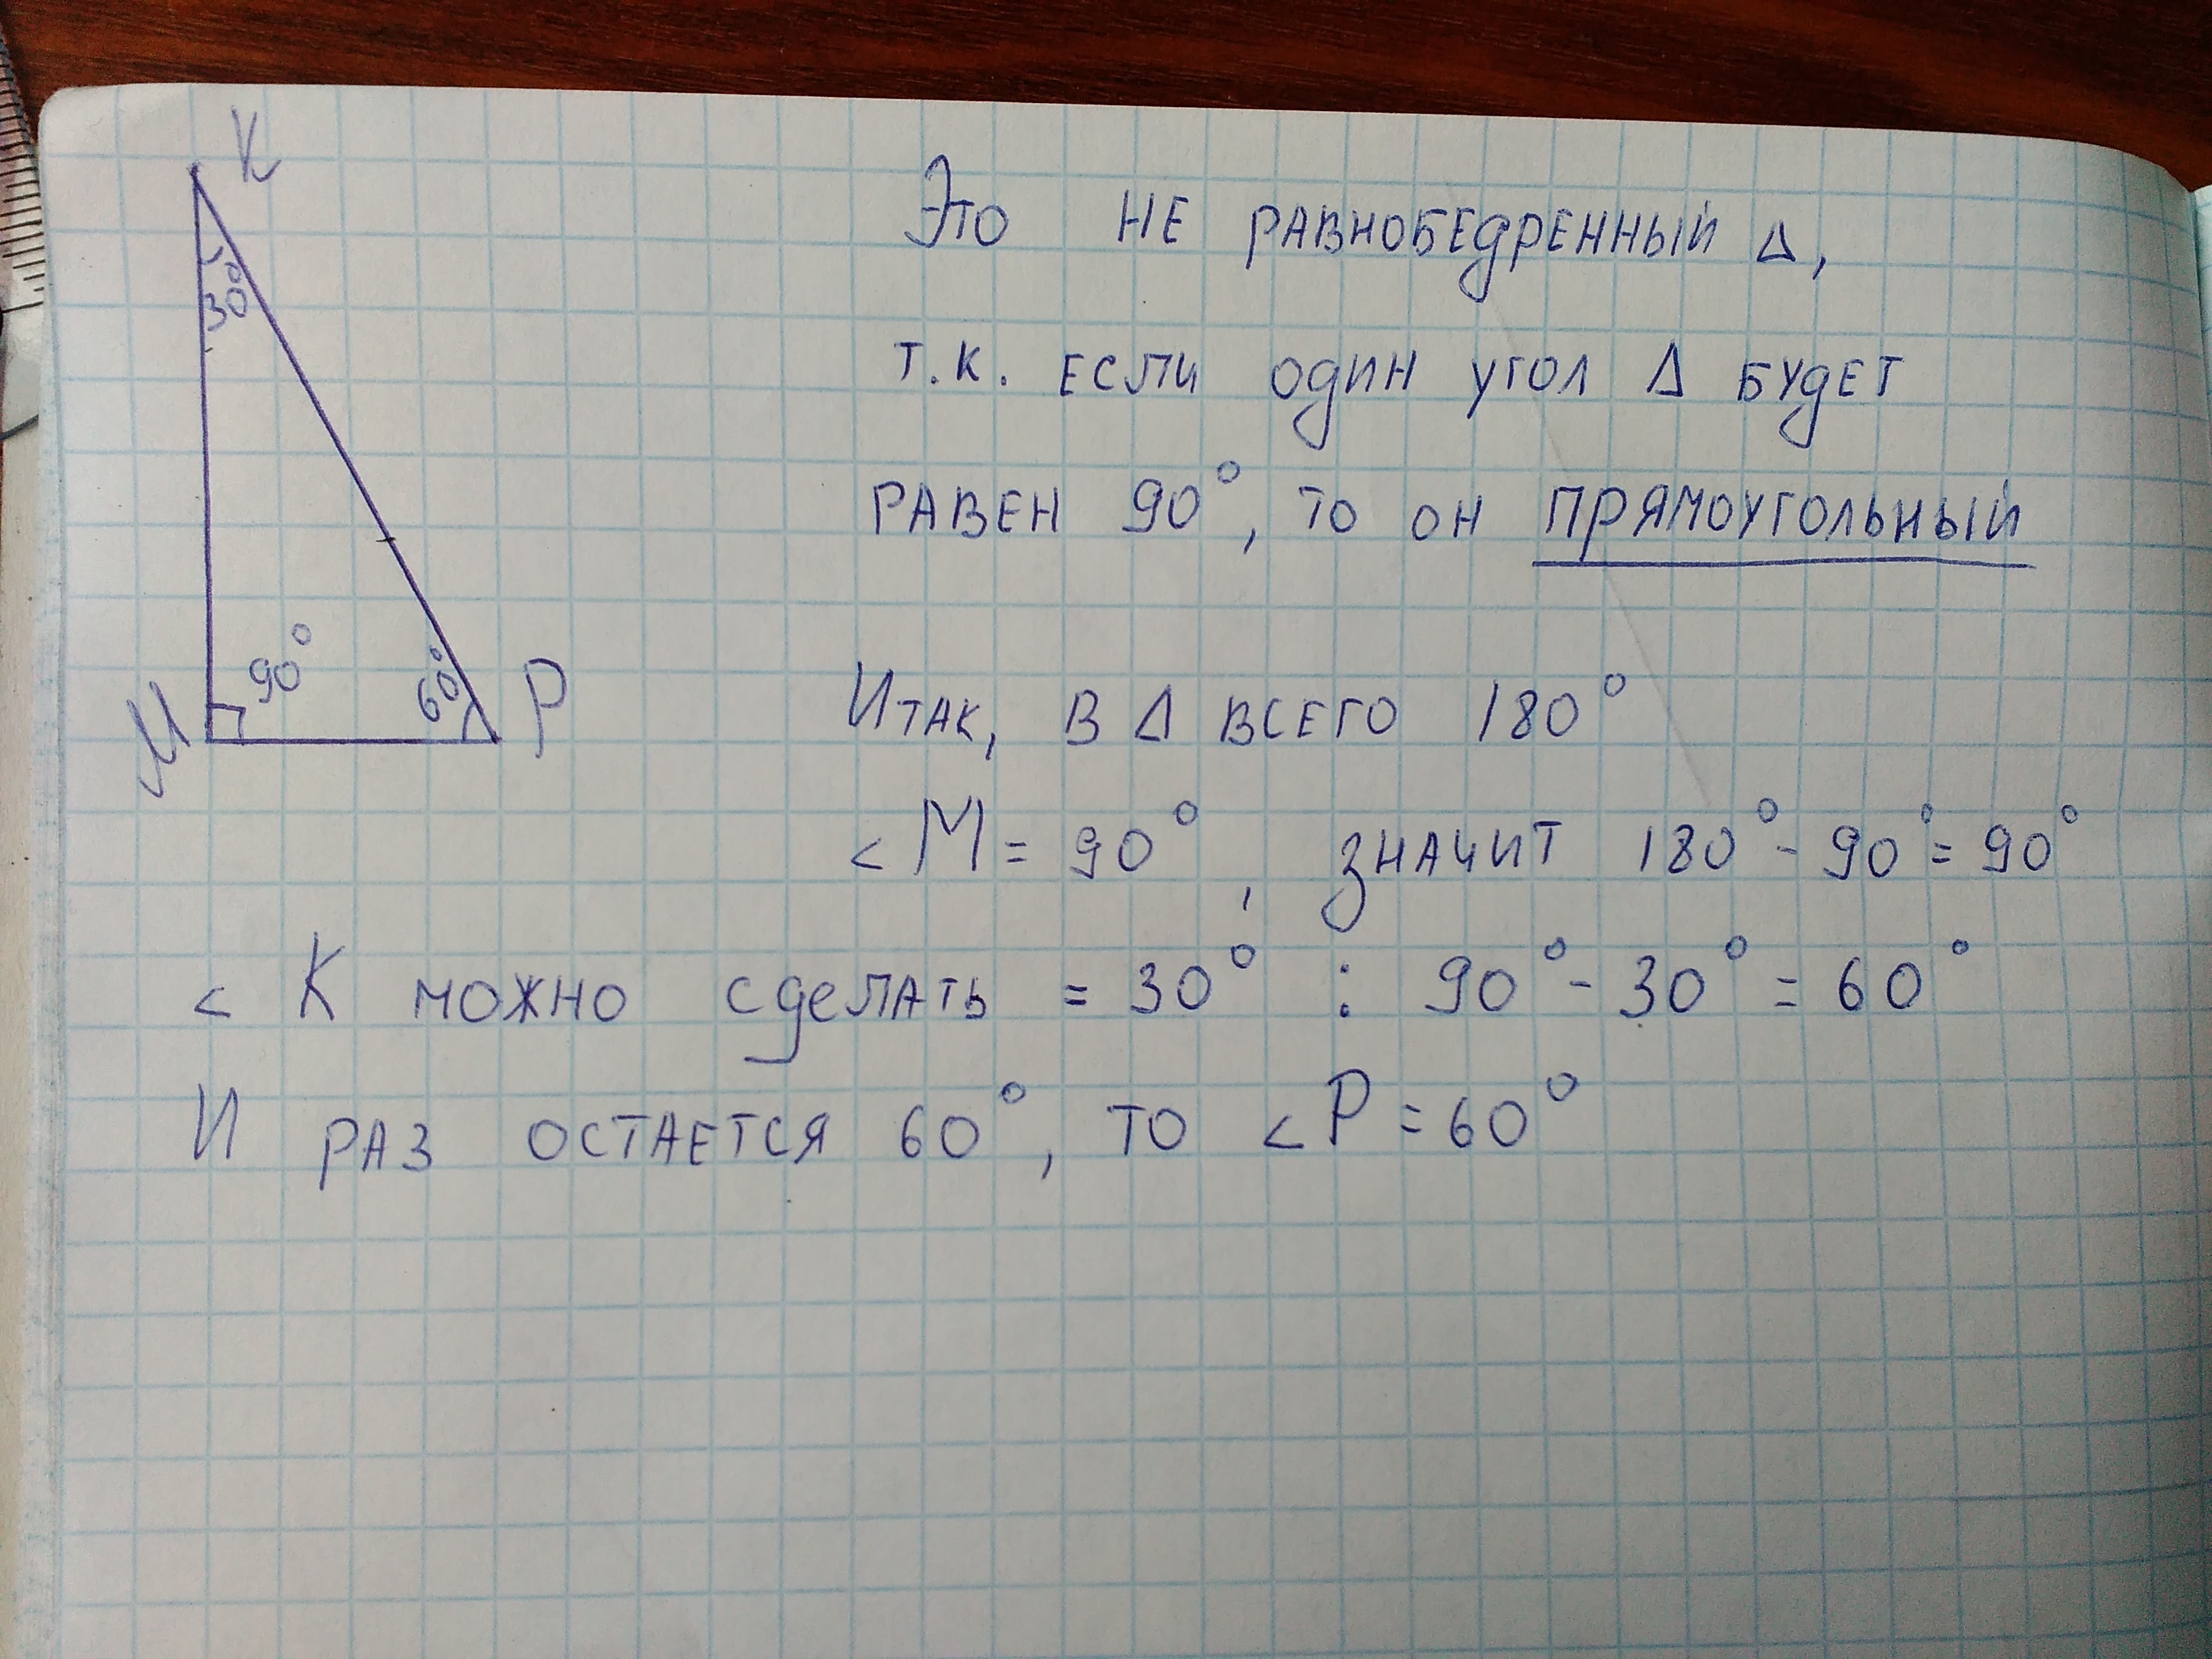 К
30°
М
90°
60°
Р
Это не равнобедренный Δ,
т.к. если один угол Δ будет
равен 90°, то он прямоугольный
Итак, в Δ всего 180°
< М = 90°, значит 180° - 90° = 90°
< К можно сделать = 30° : 90° - 30° = 60°
И раз остается 60°, то < Р = 60°